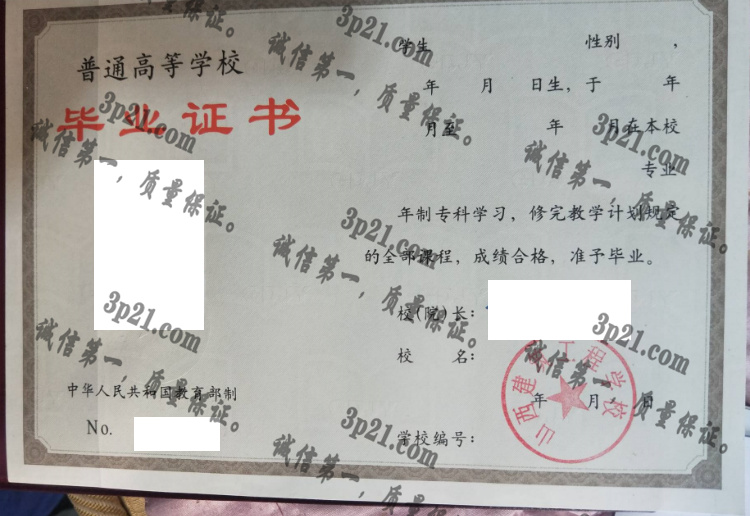 普通高等学校
毕业证书
学生 性别 ，
年 月 日生，于 年
月至 年 月在本校
专业
年制专科学习，修完教学计划规定
的全部课程，成绩合格，准予毕业。
校(院)长：
校 名：
山西建 工程学校
年 月 日
中华人民共和国教育部制
No.
学校编号：
3p21.com
诚信第一，质量保证。
3p21.com
诚信第一，质量保证。
3p21.com
诚信第一，质量保证。
3p21.com
诚信第一，质量保证。
3p21.com
诚信第一，质量保证。
3p21.com
诚信第一，质量保证。
3p21.com
诚信第一，质量保证。